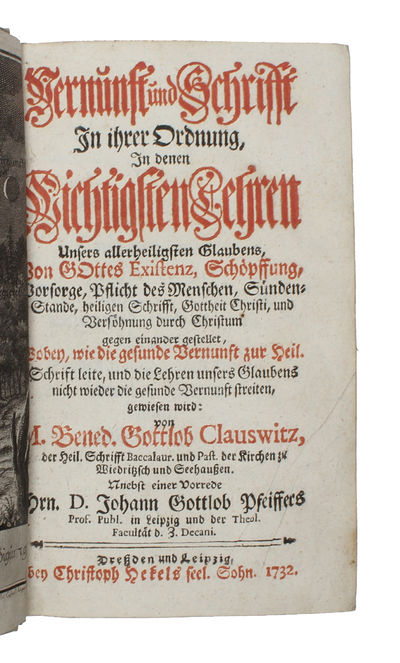 Vernunft und Schrifft
In ihrer Ordnung,
In denen
Wichtigsten Lehren
Unsers allerheiligsten Glaubens,
Von GOttes Existenz, Schöpffung,
Vorsorge, Pflicht des Menschen, Sünden-
Stande, heiligen Schrifft, Gottheit Christi, und
Versöhnung durch Christum
gegen einander gestellet,
Wobey, wie die gesunde Vernunft zur Heil.
Schrift leite, und die Lehren unsers Glaubens
nicht wieder die gesunde Vernunft streiten,
gewiesen wird:
von
M. Bened. Gottlob Clauswitz,
der Heil. Schrifft Baccalaur. und Past. der Kirchen zu
Wiedritzsch und Seehaußen.
Nebst einer Vorrede
Hrn. D. Johann Gottlob Pfeiffers
Prof. Publ. in Leipzig und der Theol.
Facultät d. Z. Decani.
Dreßden und Leipzig,
bey Christoph Hekels seel. Sohn. 1732.